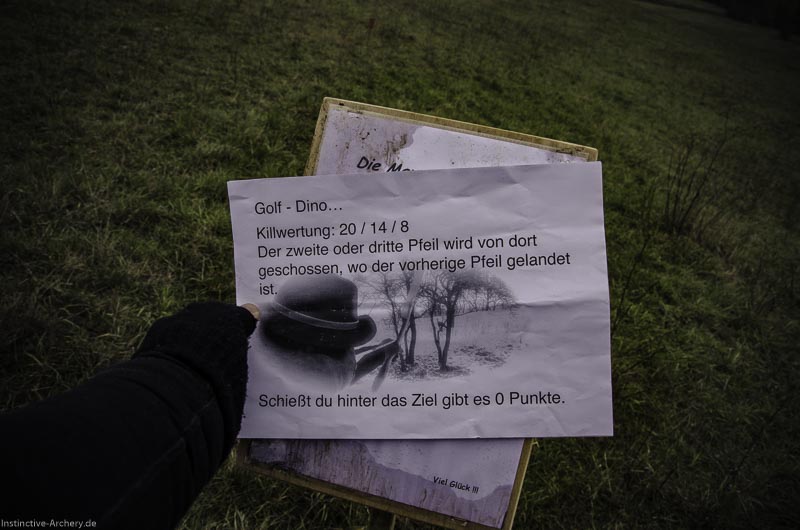 Die
Golf - Dino...
Killwertung: 20 / 14 / 8
Der zweite oder dritte Pfeil wird von dort
geschossen, wo der vorherige Pfeil gelandet
ist.
Schießt du hinter das Ziel gibt es 0 Punkte.
Viel Glück !!!
Instinctive-Archery.de